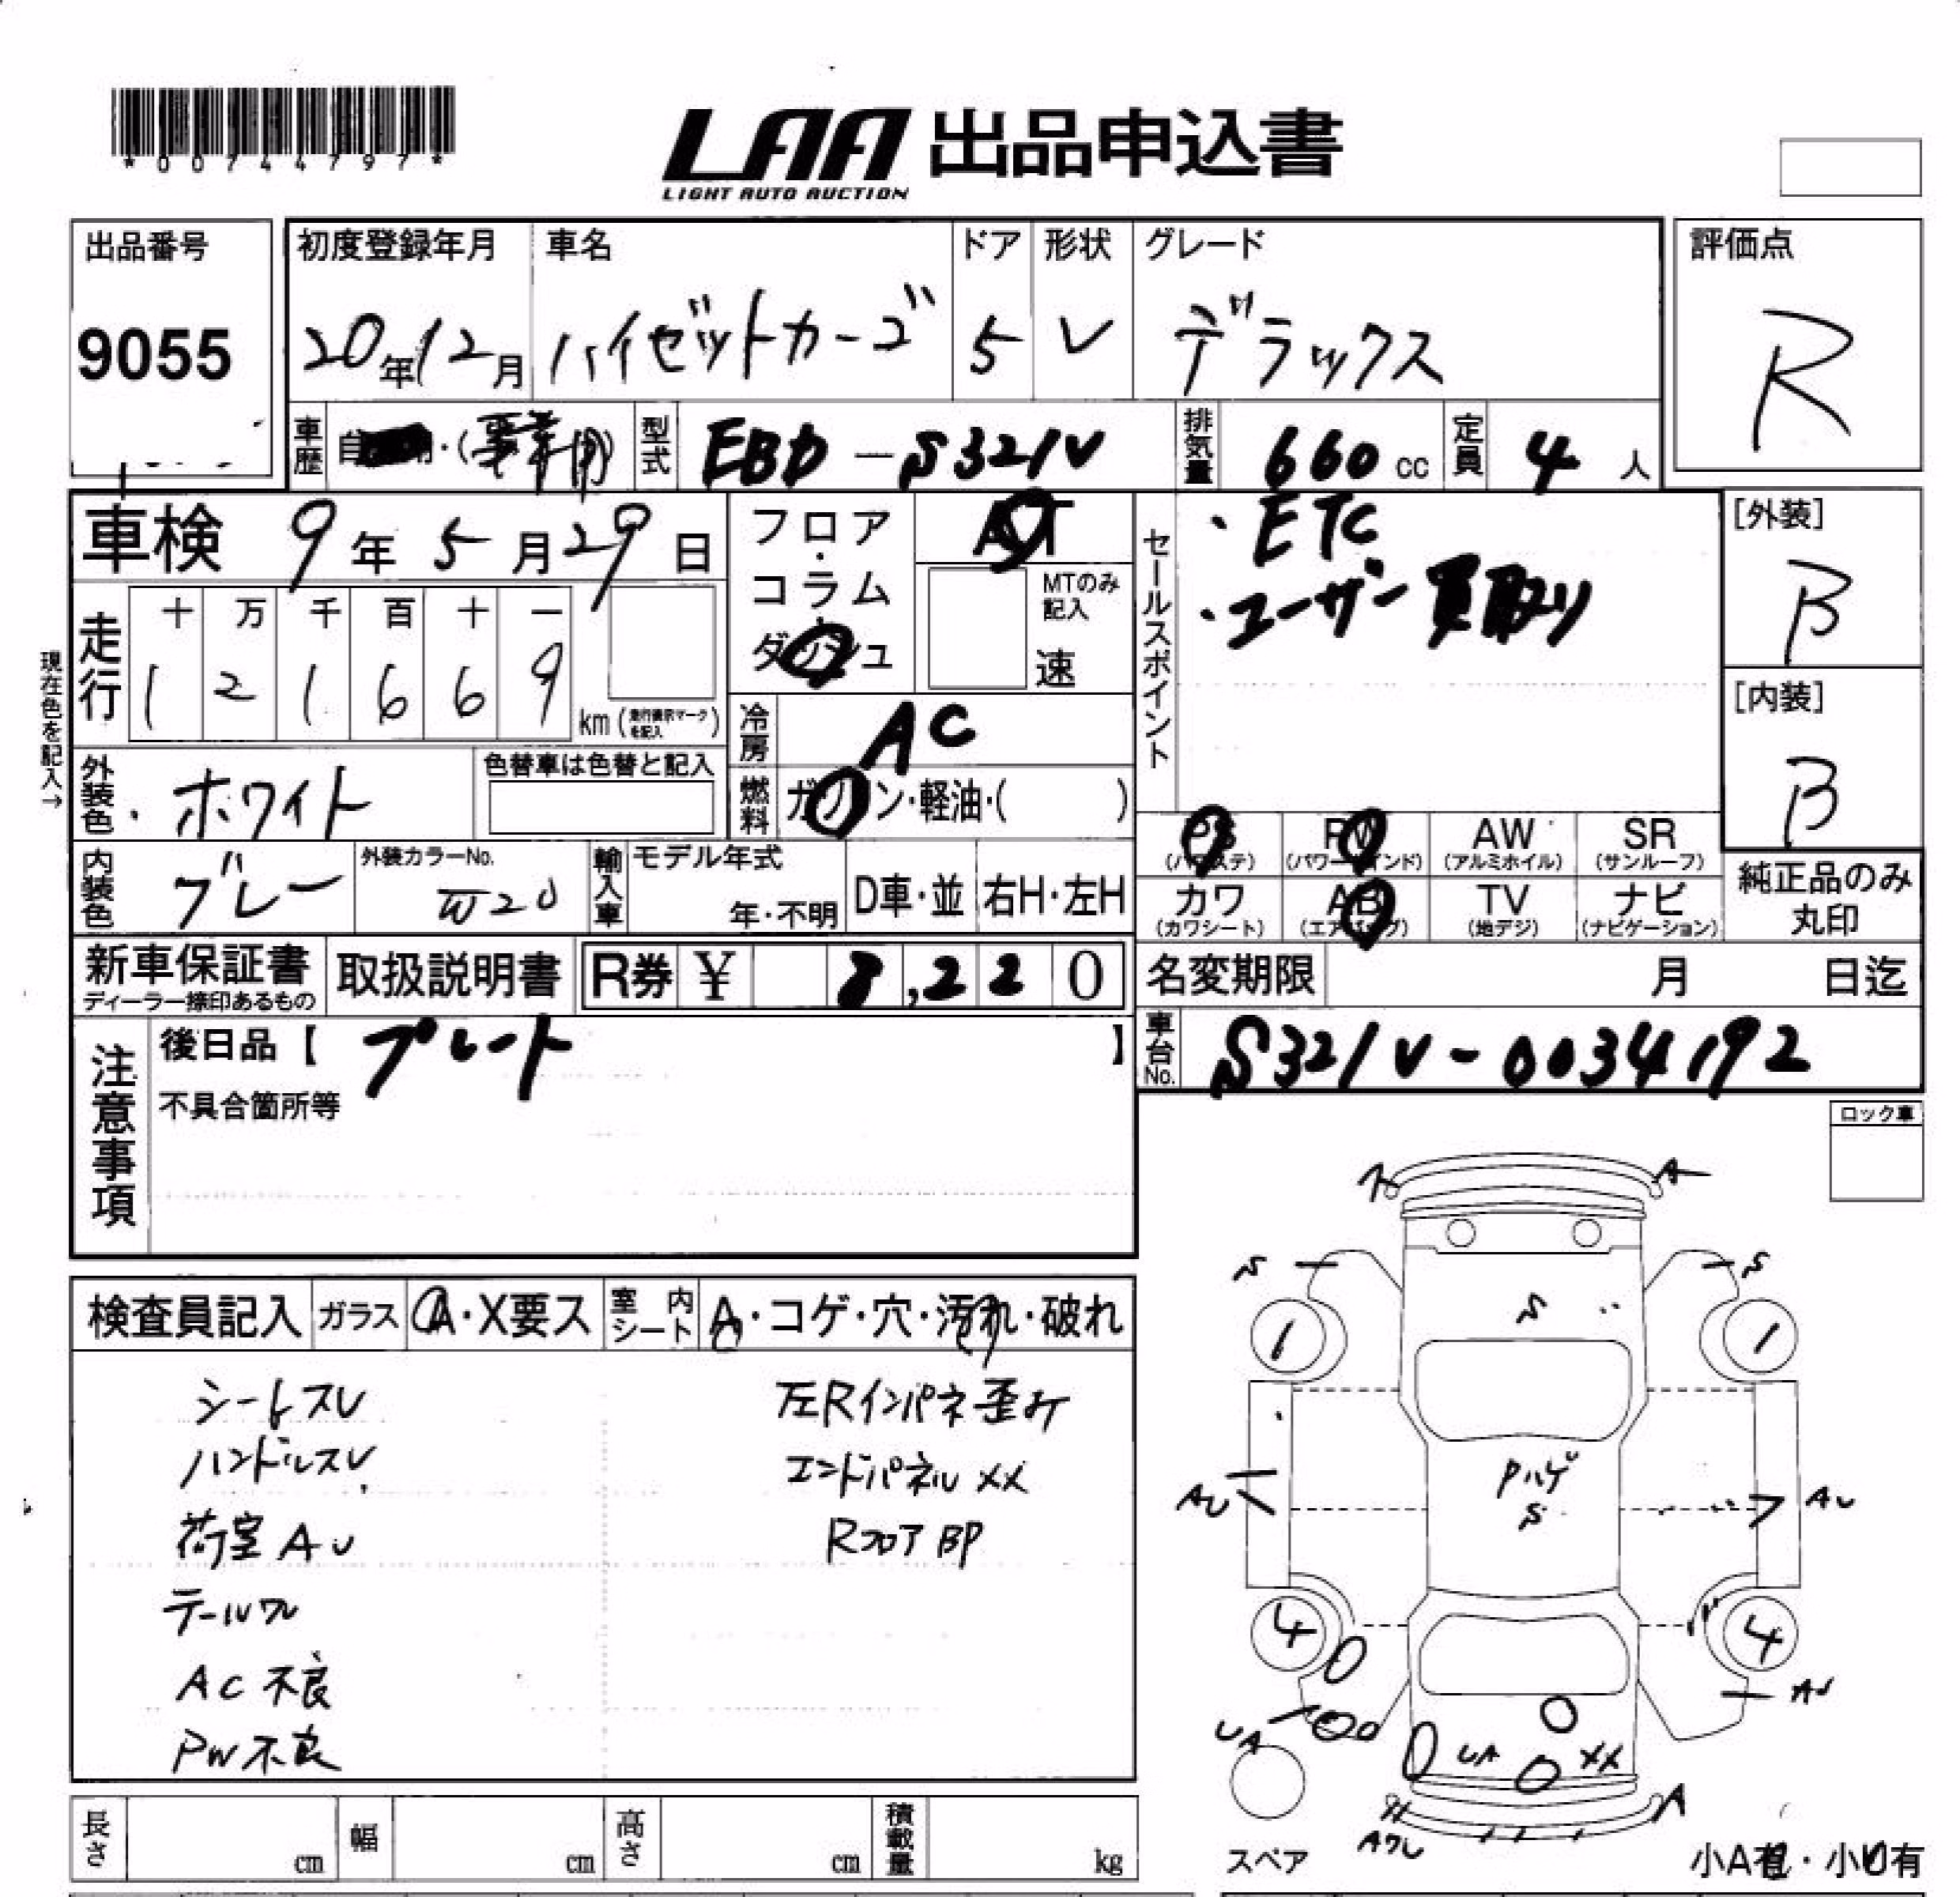 *00744797*
LAA 出品申込書
LIGHT AUTO AUCTION
出品番号
9055
初度登録年月
20年12月
車名
ハイゼットカーゴ
ドア
5
形状
V
グレード
デラックス
評価点
R
車歴
(事業用)
型式
EBD-S321V
排気量
660 cc
定員
4 人
車検 9年5月29日
フロア・コラム・ダッシュ
AT
MTのみ記入
速
セールスポイント
・ETC
・ユーザー買取り
[外装]
B
[内装]
B
現在色を記入→
走行
十 万 千 百 十 一
1 2 1 6 6 9
km (走行換尺マークを記入)
冷房
AC
燃料
ガソリン・軽油・( )
外装色
ホワイト
色替車は色替と記入
内装色
グレー
外装カラーNo.
W20
輸入車
モデル年式
年・不明
D車・並
右H・左H
PS (パワステ)
PW (パワーウインド)
AW (アルミホイル)
SR (サンルーフ)
カワ (カワシート)
AB (エアバッグ)
TV (地デジ)
ナビ (ナビゲーション)
純正品のみ丸印
新車保証書
ディーラー捺印あるもの
取扱説明書
R券 ¥ 8,220
名変期限 月 日迄
車台No.
S321V-0034192
注意事項
後日品【 プレート 】
不具合箇所等
ロック車
検査員記入
ガラス
A・X要ス
室内シート
A・コゲ・穴・汚れ・破れ
シートスレ
ハンドルスレ
荷室AU
テールワレ
AC不良
PW不良
左Rインパネ歪み
エンドパネルXX
RフロアBP
A
A
S
S
S
1
1
Pハゲ
S
AU
AU
4
4
AU
UA
UA
XX
A
Aワレ
スペア
小A有・小U有
長さ cm
幅 cm
高さ cm
積載量 kg